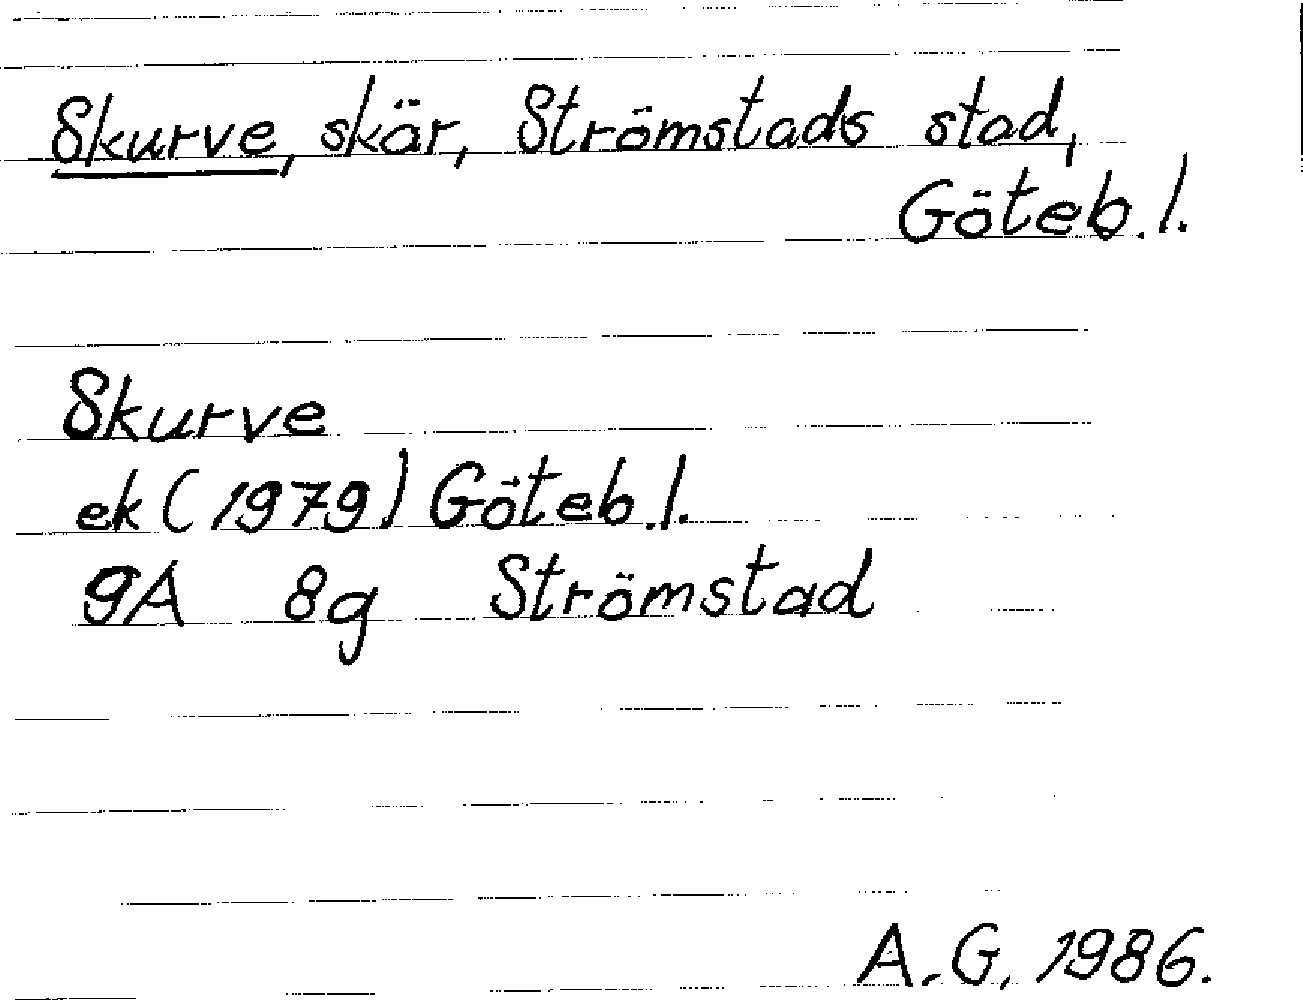 Skurve, skär, Strömstads stad,
Göteb. l.
Skurve
ek (1979) Göteb. l.
9A 8g Strömstad
A. G. 1986.